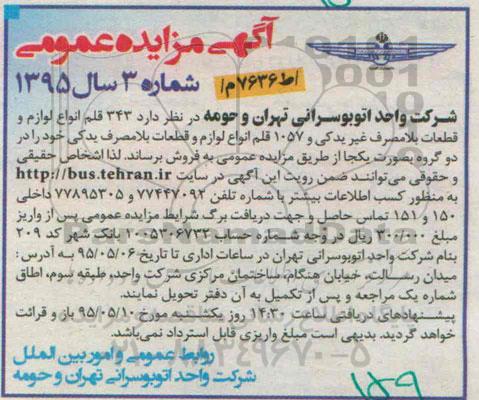 آگهی مزایده عمومی
شماره ۳ سال ۱۳۹۵
/ط۷۶۳۶م/
شرکت واحد اتوبوسرانی تهران و حومه در نظر دارد ۳۴۳ قلم انواع لوازم و
قطعات بلامصرف غیر یدکی و ۱۰۵۷ قلم انواع لوازم و قطعات بلامصرف یدکی خود را در
دو گروه بصورت یکجا از طریق مزایده عمومی به فروش برساند. لذا اشخاص حقیقی
و حقوقی می‌توانند ضمن رویت این آگهی در سایت http://bus.tehran.ir
به منظور کسب اطلاعات بیشتر با شماره تلفن ۷۷۴۴۷۰۹۲ و ۷۷۸۹۵۳۰۵ داخلی
۱۵۰ و ۱۵۱ تماس حاصل و جهت دریافت برگ شرایط مزایده عمومی پس از واریز
مبلغ ریال در وجه شماره حساب ۱۰۰۵۳۰۶۷۳۲ بانک شهر کد ۲۰۹
بنام شرکت واحد اتوبوسرانی تهران در ساعات اداری تا تاریخ ۹۵/۰۵/۰۶ به آدرس:
میدان رسالت، خیابان هنگام، ساختمان مرکزی شرکت واحد، طبقه سوم، اطاق
شماره یک مراجعه و پس از تکمیل به آن دفتر تحویل نمایند.
پیشنهادهای دریافتی ساعت ۱۴:۳۰ روز یکشنبه مورخ ۹۵/۰۵/۱۰ باز و قرائت
خواهد گردید. بدیهی است مبلغ واریزی قابل استرداد نمی‌باشد.
روابط عمومی و امور بین الملل
شرکت واحد اتوبوسرانی تهران و حومه
۱۵۹